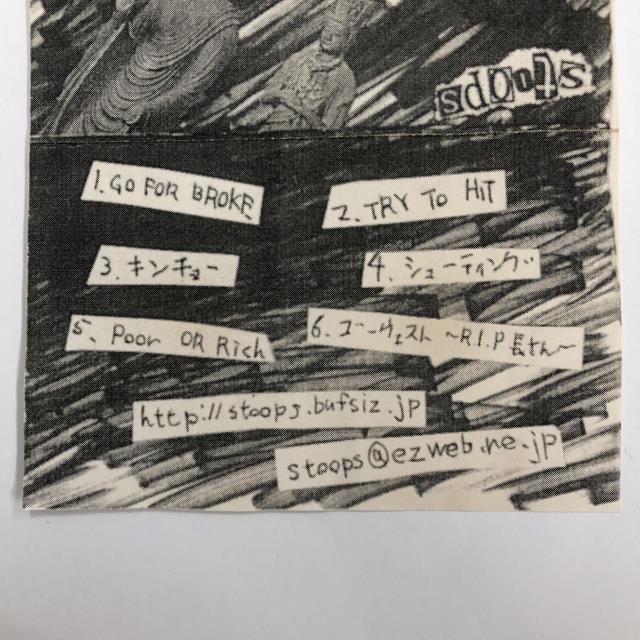 stoops
1. GO FOR BROKE
2. TRY TO HIT
3. キンチョー
4. シューティング
5. Poor OR Rich
6. ゴーウェスト ～R.I.P 長さん～
http://stoops.bufsiz.jp
stoops@ezweb.ne.jp